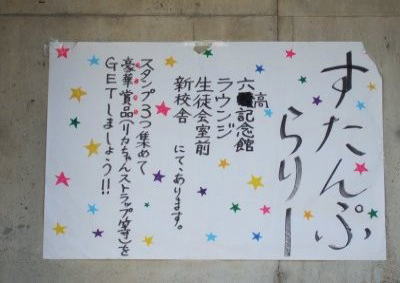 すたんぷ
らりー
六高記念館
ラウンジ
生徒会室前
新校舎 にてあります。
スタンプ3つ集めて
豪華賞品(リカちゃんストラップ等)を
GETしましょう!!